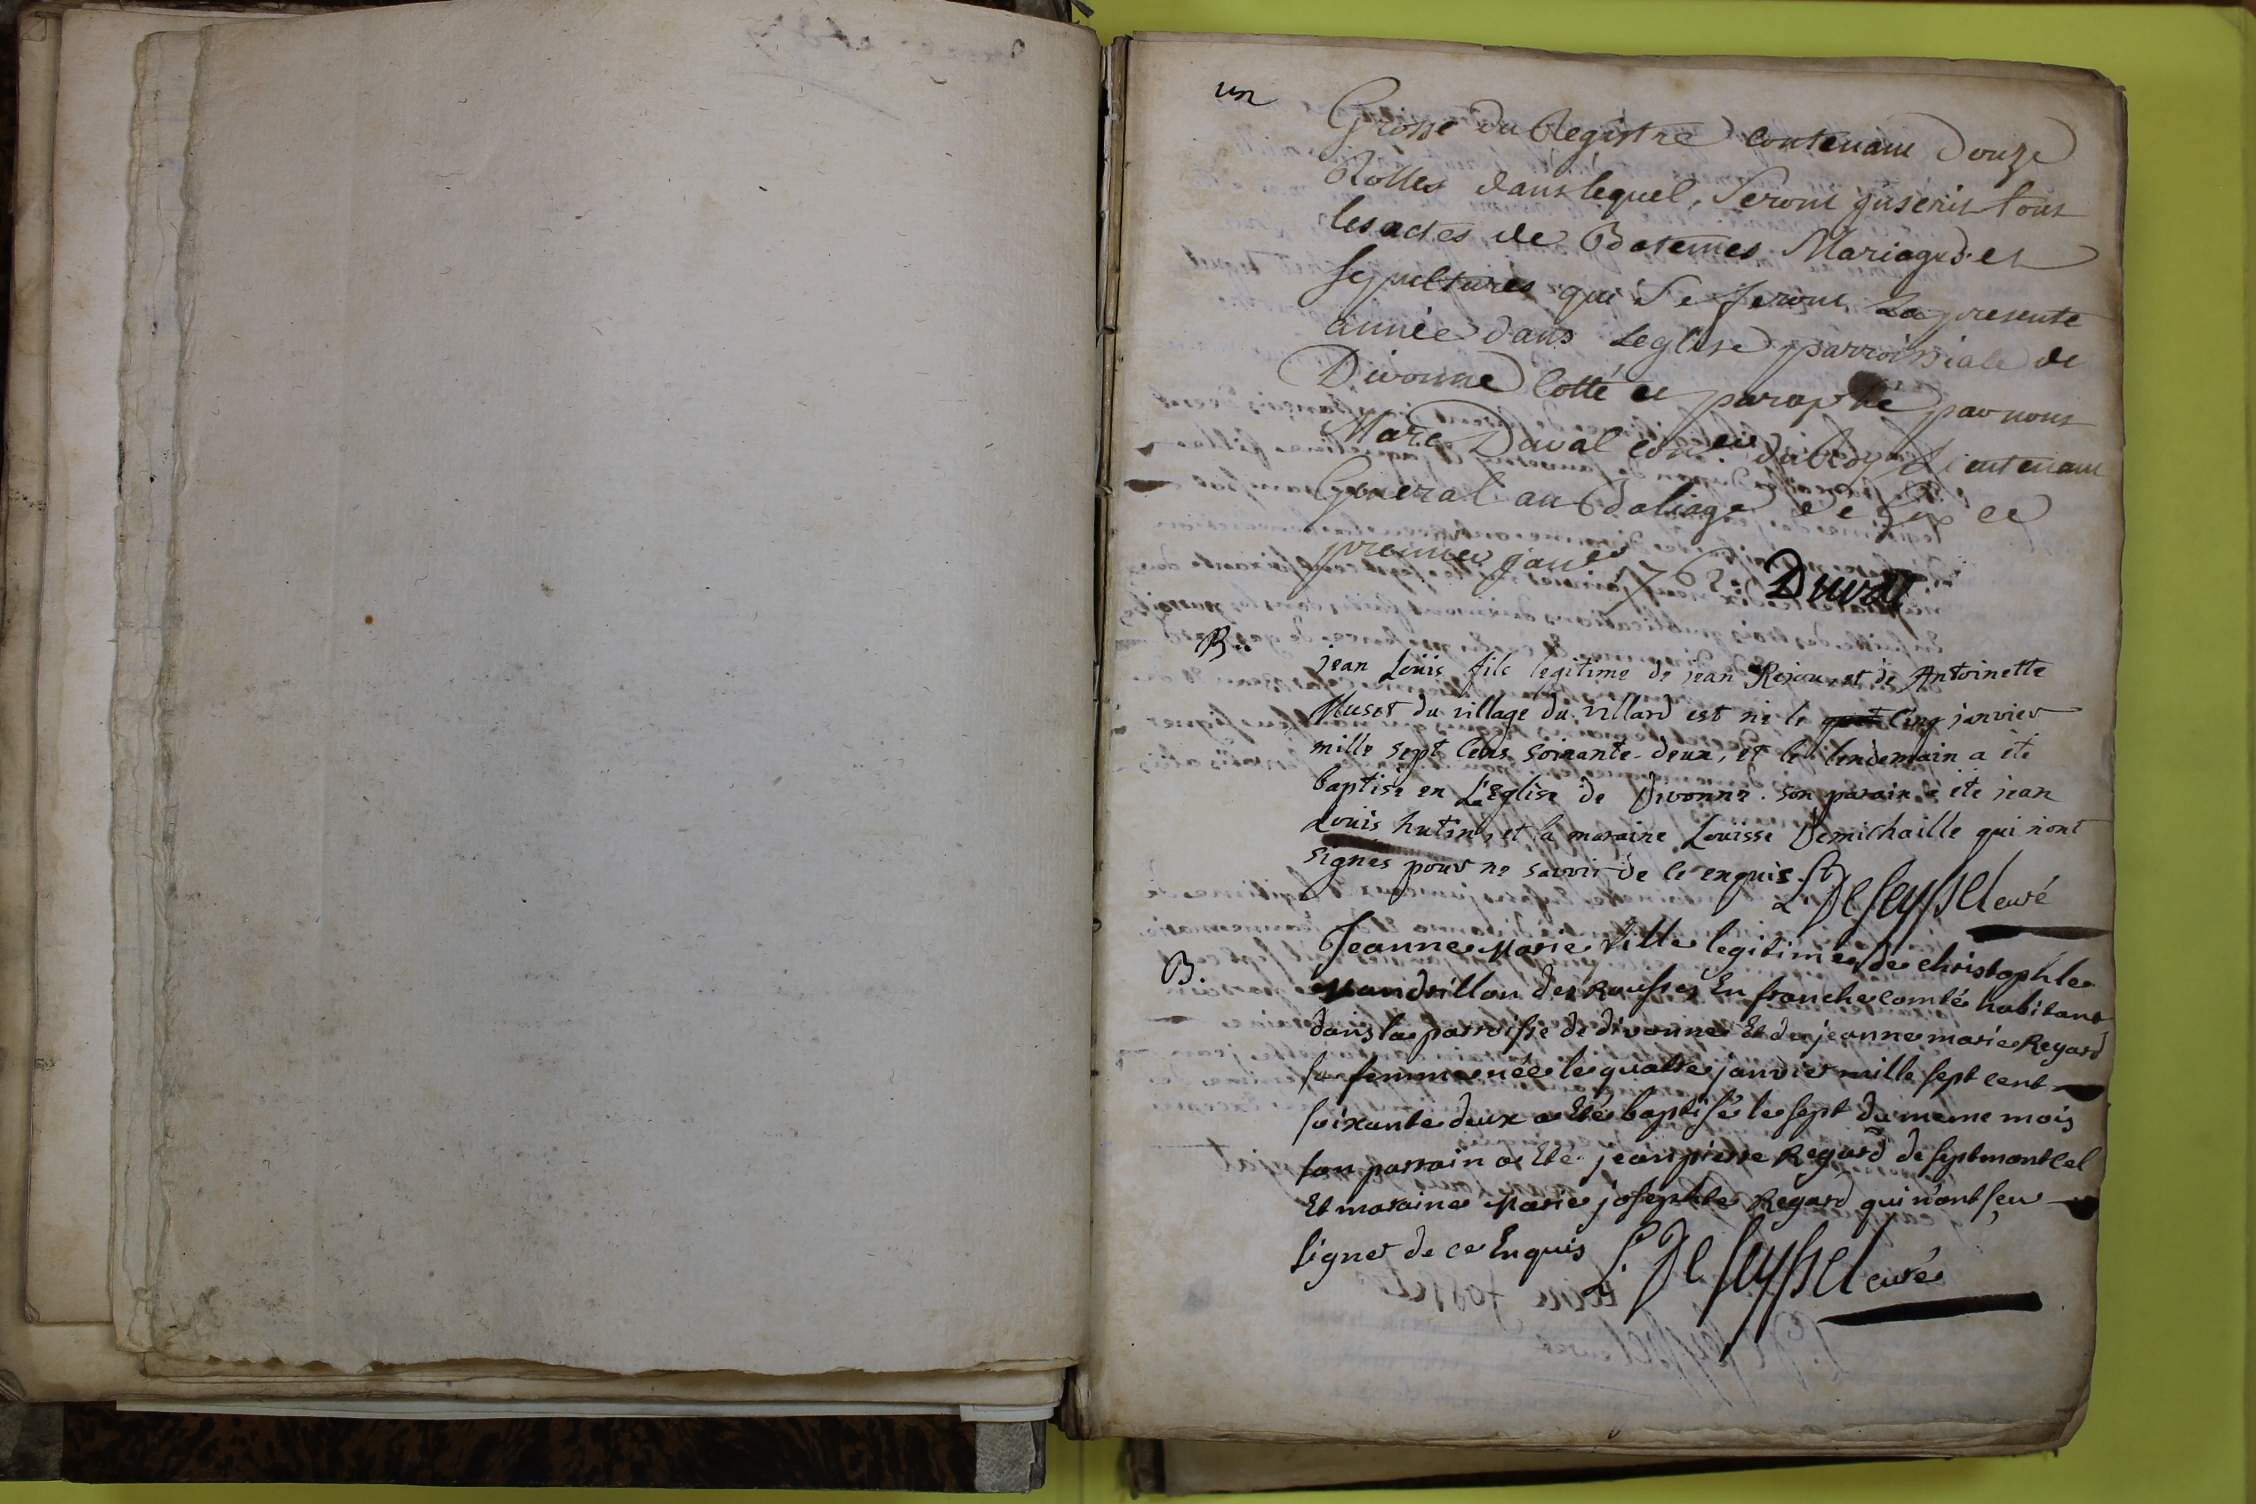 un
Grosse du Registre contenant douze
Rolles dans lequel, Seront inserit tous
les actes de Batêmes Mariages et
sepultures qui Se feront La presente
année dans Leglise parroissiale de
Divonne Cotté et paraphé par nous
Marc Duval conser du Roy Lieutenant
General au Baliage de Gex ce
premier janer 1762. Duval
B.
jean Louis fils legitime de jean et de Antoinette
Muset du village du villard est né le cinq janvier
mille sept cens soixante-deux, et le lendemain a été
baptisé en L'Eglise de Divonne. son parain a été jean
Louis hutin, et la maraine Louisse Demichaille qui n'ont
signés pour ne savoir de ce enquis L. De Seyssel curé
B.
Jeanne Marie fille legitime de christophle
Mandrillon des Rousses En franche comté habitant
dans la parroisse de divonne Et de jeanne marie Regard
sa femme née le quatre janvier mille sept cent
soixante deux a Eté baptisé le sept du meme mois
son parrain a Eté jean pierre Regard de septmontcel
Et maraine Marie josephte Regard qui n'ont sçu
signer de ce Enquis L. De Seyssel curé